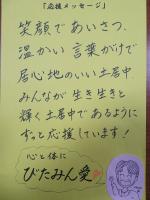 「応援メッセージ」
笑顔であいさつ、
温かい言葉がけで
居心地のいい土居中
みんなが生き生きと
輝く土居中であるように
ずっと応援しています！
心と体に
びたみん愛